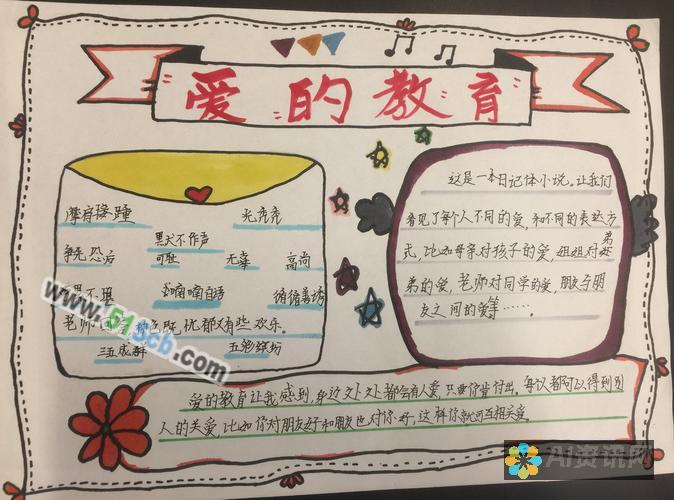 爱的教育
摩肩接踵 光秃秃
默不作声
争先恐后 可耻 无辜 高尚
喃喃自语 循循善诱
老师 色既忧郁又有些欢乐。
三五成群 五彩缤纷
这是一本日记体小说。让我们
看见了每个人不同的爱,和不同的表达方
式,比如母亲对孩子的爱,姐姐对弟
弟的爱,老师对同学的爱,朋友与朋
友之间的爱等……。
爱的教育让我感到,身边处处都会有人爱,只要你肯付出。每次都可以得到别
人的关爱,比如你对朋友好和朋友也对你好,这样你就可互相关爱
www.51scb.com
AI资讯网